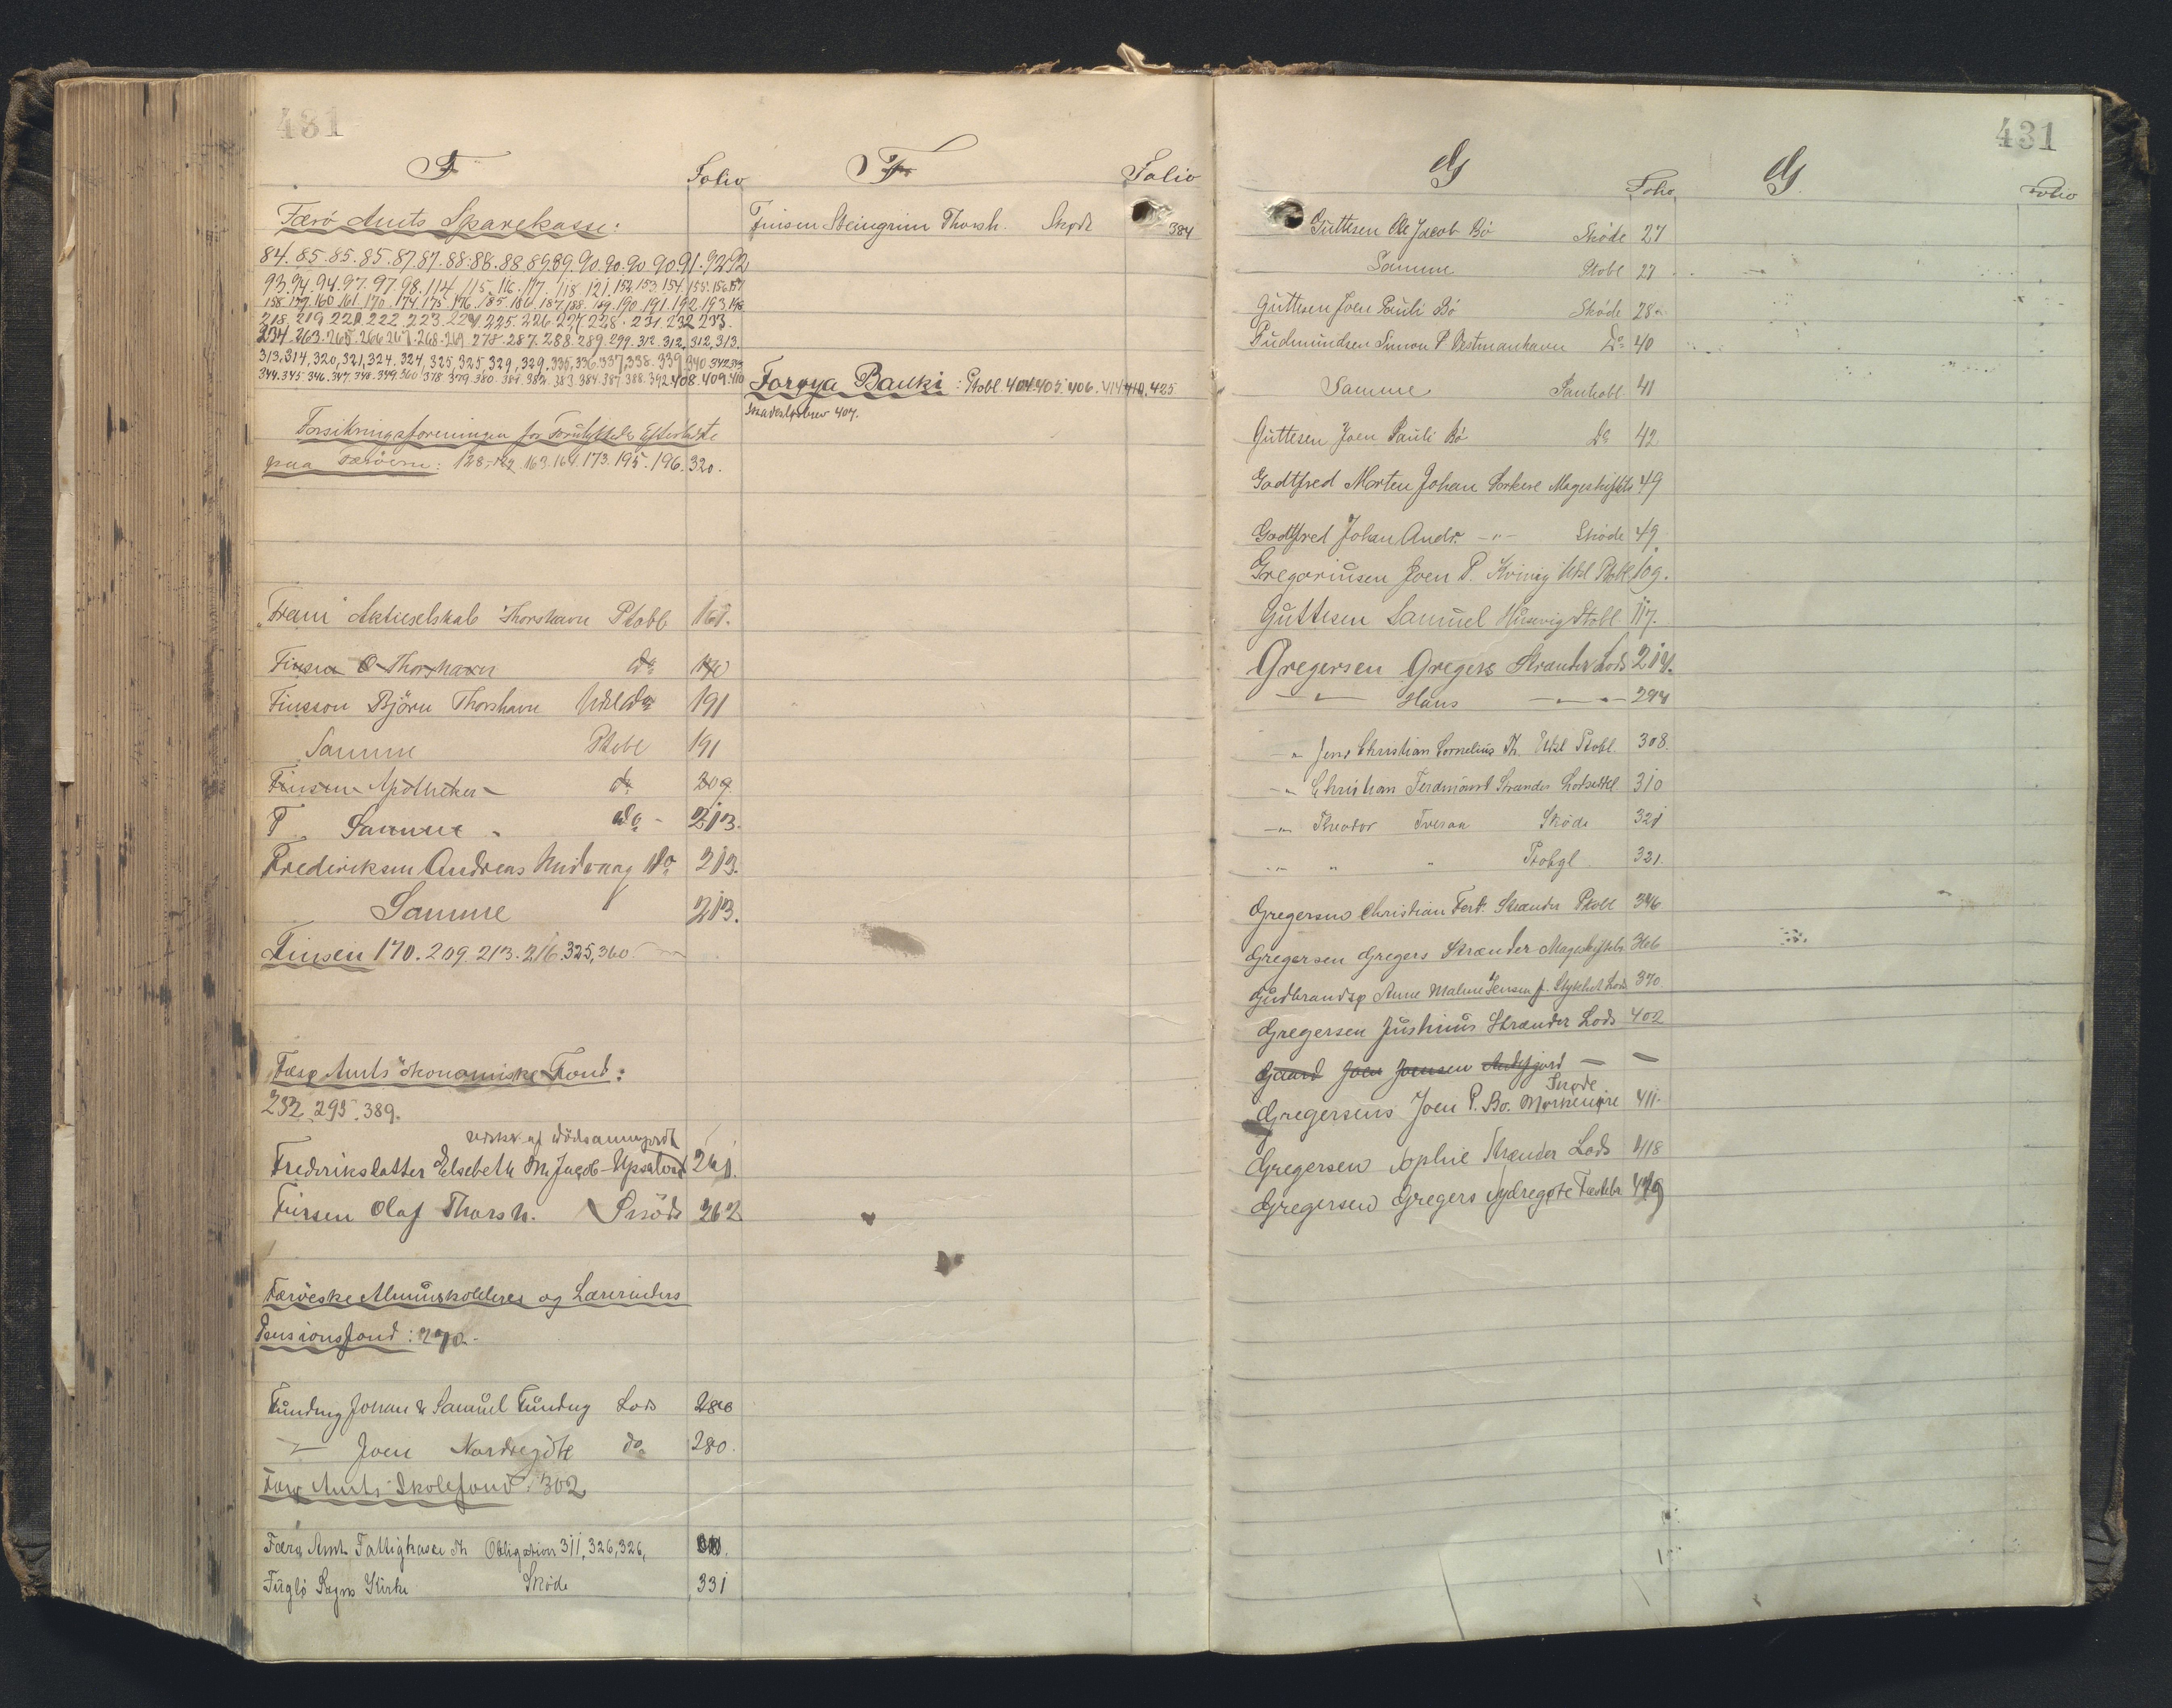 431
F
Folio
F
Folio
Færö Amts Sparekasse:
84. 85. 85. 85. 87 87. 88. 88. 88 89 89. 90. 90. 90. 90 91. 92 92
93. 94. 94. 97. 97. 98. 114 115. 116. 117. 118 121. 152. 153. 154. 155. 156 157
158. 159. 160 161. 170. 174. 175. 176. 185. 186. 187 188. 189. 190. 191. 192. 193 198
218. 219. 221 222. 223. 224. 225. 226. 227. 228. 231. 232 233.
234. 263. 265. 266 267. 268. 269 278. 287. 288. 289. 299. 312. 312. 312, 313.
313, 314, 320, 321, 324, 324, 325, 325, 329, 329, 335, 336. 337, 338. 339, 340 342 343
344. 345. 346. 347. 348. 349. 360 378 379. 380. 381. 382. 383. 384. 387. 388. 392 408. 409. 410
Forsikringsforeningen for Forulykkedes Efterladte
paa Færöerne: 128, 129. 163. 164. 173. 195. 196. 320.
"Fram" Aktieselskab Thorshavn Ptobl 161.
Finsen O Thorshavn do 170
Finsson Björn Thorshavn Udsl do 191
Samme Ptobl 191
Finsen Apotheker do 209.
F Samme do 213.
Frederiksen Andreas Midvaag do 213.
Samme 213.
Finsen 170. 209. 213. 216. 325, 360.
Færø Amts økonomiske Fond:
232. 295. 389.
udskr. af Dödsanmeldt
Frederiksdatter Elsebeth M. Jacob 261.
Finsen Olaf Thorsh. Skøde 262
Færöeske Almueskolelærers og Lærerinders
Pensionsfond: 270.
Funding Johan & Samuel Funding Lods 280
" Joen Nordregöte do 280.
Færø Amts Skolefond: 302
Færø Amts Fattigkasse Th Obligation 311, 326, 326,
Fuglö Sogns Kirke Skøde 331
Finsen Steingrim Thorsh. Skøde 384
Føroya Banki: Ptobl. 404. 405. 406. 414. 425
407.
431
G
Folio
G
Folio
Guttesen Ole Jacob Bö Sköde 27
Samme Ptobl 27
Guttesen Joen Pauli Bö Sköde 28
Gudmundsen Simon P. Vestmanhavn Do 40
Samme Pantobl. 41
Guttesen Joen Pauli Bö Do 42
Godtfred Morten Johan Mageskifte 49
Godtfred Johan Andr. -"- Sköde 49
Gregoriusen Joen P. Kvivig Udsl Ptobl. 109.
Guttesen Samuel Husevig Ptobl. 117.
Gregersen Gregers Strænder Lods 291.
" Hans " 294
" Jens Christian Cornelius Th. Udsl Ptobl. 308.
" Christian Ferdinand Strænder Lodseddel 310
" Theodor Sköde 321
" " " Ptobgl. 321.
Gregersen Christian Ferd. Strænder Ptobl 346
Gregersen Gregers Strænder Mageskiftebr. 366
Gudbrandsø Anne Maline Jensen f. Lods 370
Gregersen Justinus Strænder Lods 402
Gaard Joen Joensen Andefjord
Skøde
Gregersens Joen P. Bø. 411.
Gregersen Sophie Strænder Lods 418
Gregersen Gregers Sydregøte Fæstebr. 419